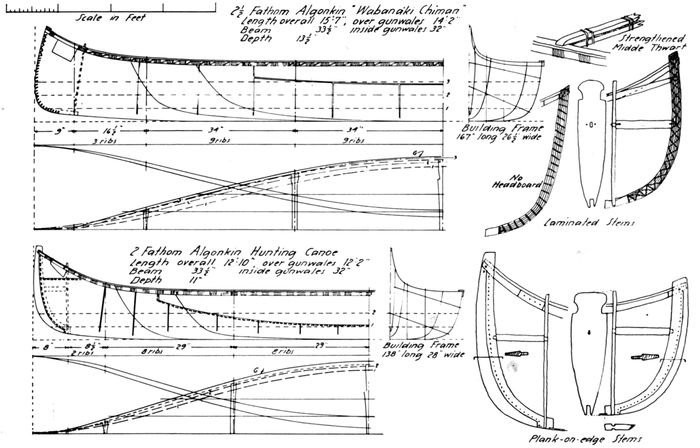 Scale in Feet
2½ Fathom Algonkin "Wabanaki Chiman"
Length overall 15'-7", over gunwales 14'-2"
Beam 33½" inside gunwales 32"
Depth 13½"
Strengthened
Middle Thwart
3
2
1
9" 16½" 34" 34"
3 ribs 9 ribs 9 ribs
Building Frame
167" long 26½" wide
No
Headboard
Laminated Stems
2 Fathom Algonkin Hunting Canoe
Length overall 12'-10", over gunwales 12'-2"
Beam 33½" inside gunwales 32"
Depth 11"
2
1
8" 8½" 29" 29"
2 ribs 8 ribs 8 ribs
Building Frame
138" long 28" wide
G
Plank-on-edge Stems